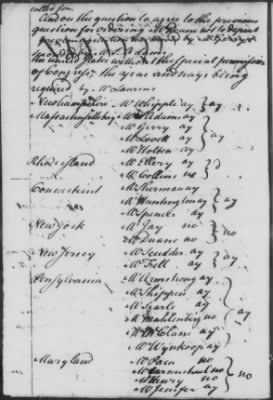 called for.
And on the question to agree to the previous
question for ordering Mr Deane not to depart
seconded by Mr S Adams
the United States without the special permission
of Congress, the yeas and nays being
required by Mr Laurens
Newhampshire Mr Whipple ay } ay
Massachusetts bay Mr S Adams ay
Mr Gerry ay } ay
Mr Lovell ay
Mr Holten ay
Rhode island Mr Ellery ay } d
Mr Collins no
Connecticut Mr Sherman ay
Mr Huntington ay } ay
Mr Spencer ay
New York Mr Jay no } no
Mr Duane no
New Jersey Mr Scudder ay } ay
Mr Fell ay
Pensylvania Mr Armstrong ay
Mr Shippen ay
Mr Searle ay } ay
Mr Muhlenberg no
Mr McClene ay
Mr Wynkoop ay
Maryland Mr Paca no
Mr Carmichael no } no
Mr Henry no
Mr Jenifer ay